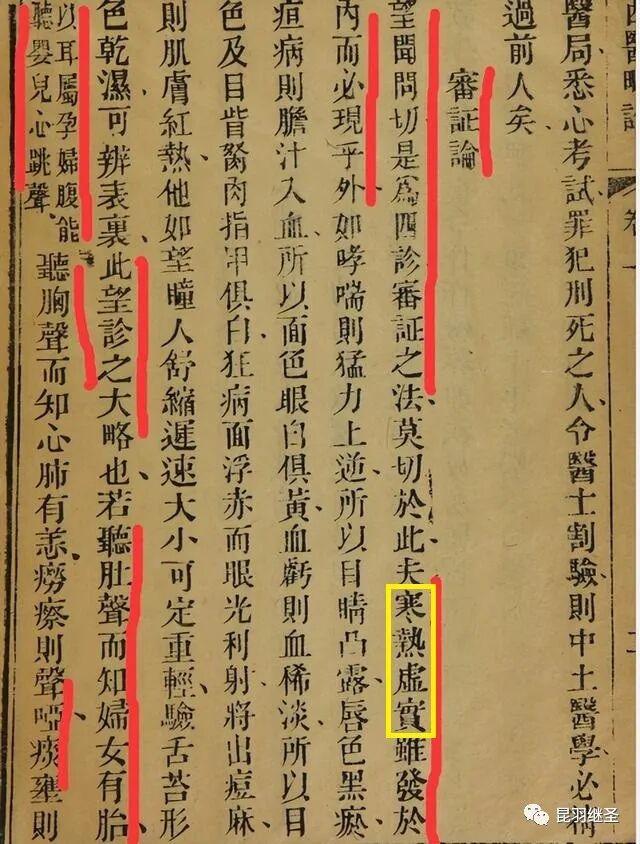 西醫略論
卷一
二
醫局悉心考試罪犯刑死之人、令醫士割驗則中土醫學必稱
過前人矣、
審証論
望聞問切是爲四診審証之法、莫切於此、夫寒熱虛實雖發於
內而必現乎外、如哮喘則猛力上逆、所以目睛凸露、唇色黑瘀、
疸病則膽汁入血所以面色眼白俱黃、血虧則血稀淡、所以目
色及目眥胬肉指甲俱白、狂病面浮赤而眼光利射、將出痘麻、
則肌膚紅熱、他如望瞳人舒縮遲速大小可定重輕、驗舌苔形
色乾濕可辨表裏、此望診之大略也、若聽肚聲而知婦女有胎
以耳屬孕婦腹能
聽嬰兒心跳聲
聽胸聲而知心肺有恙、癆瘵則聲啞、痰壅則
昆羽继圣